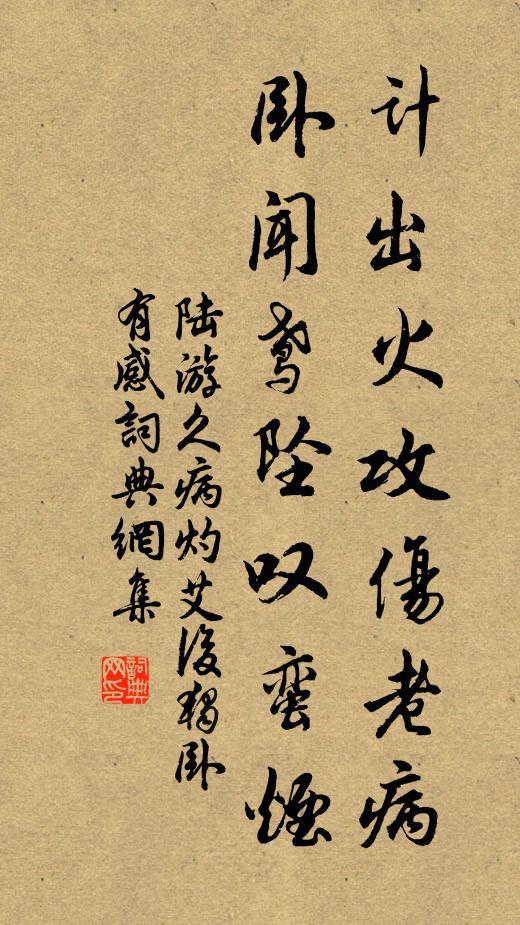 计出火攻傷老病
卧闻鸢坠叹蛮煙
陆游久病灼艾後独卧
有感詞典網集
詞典网印